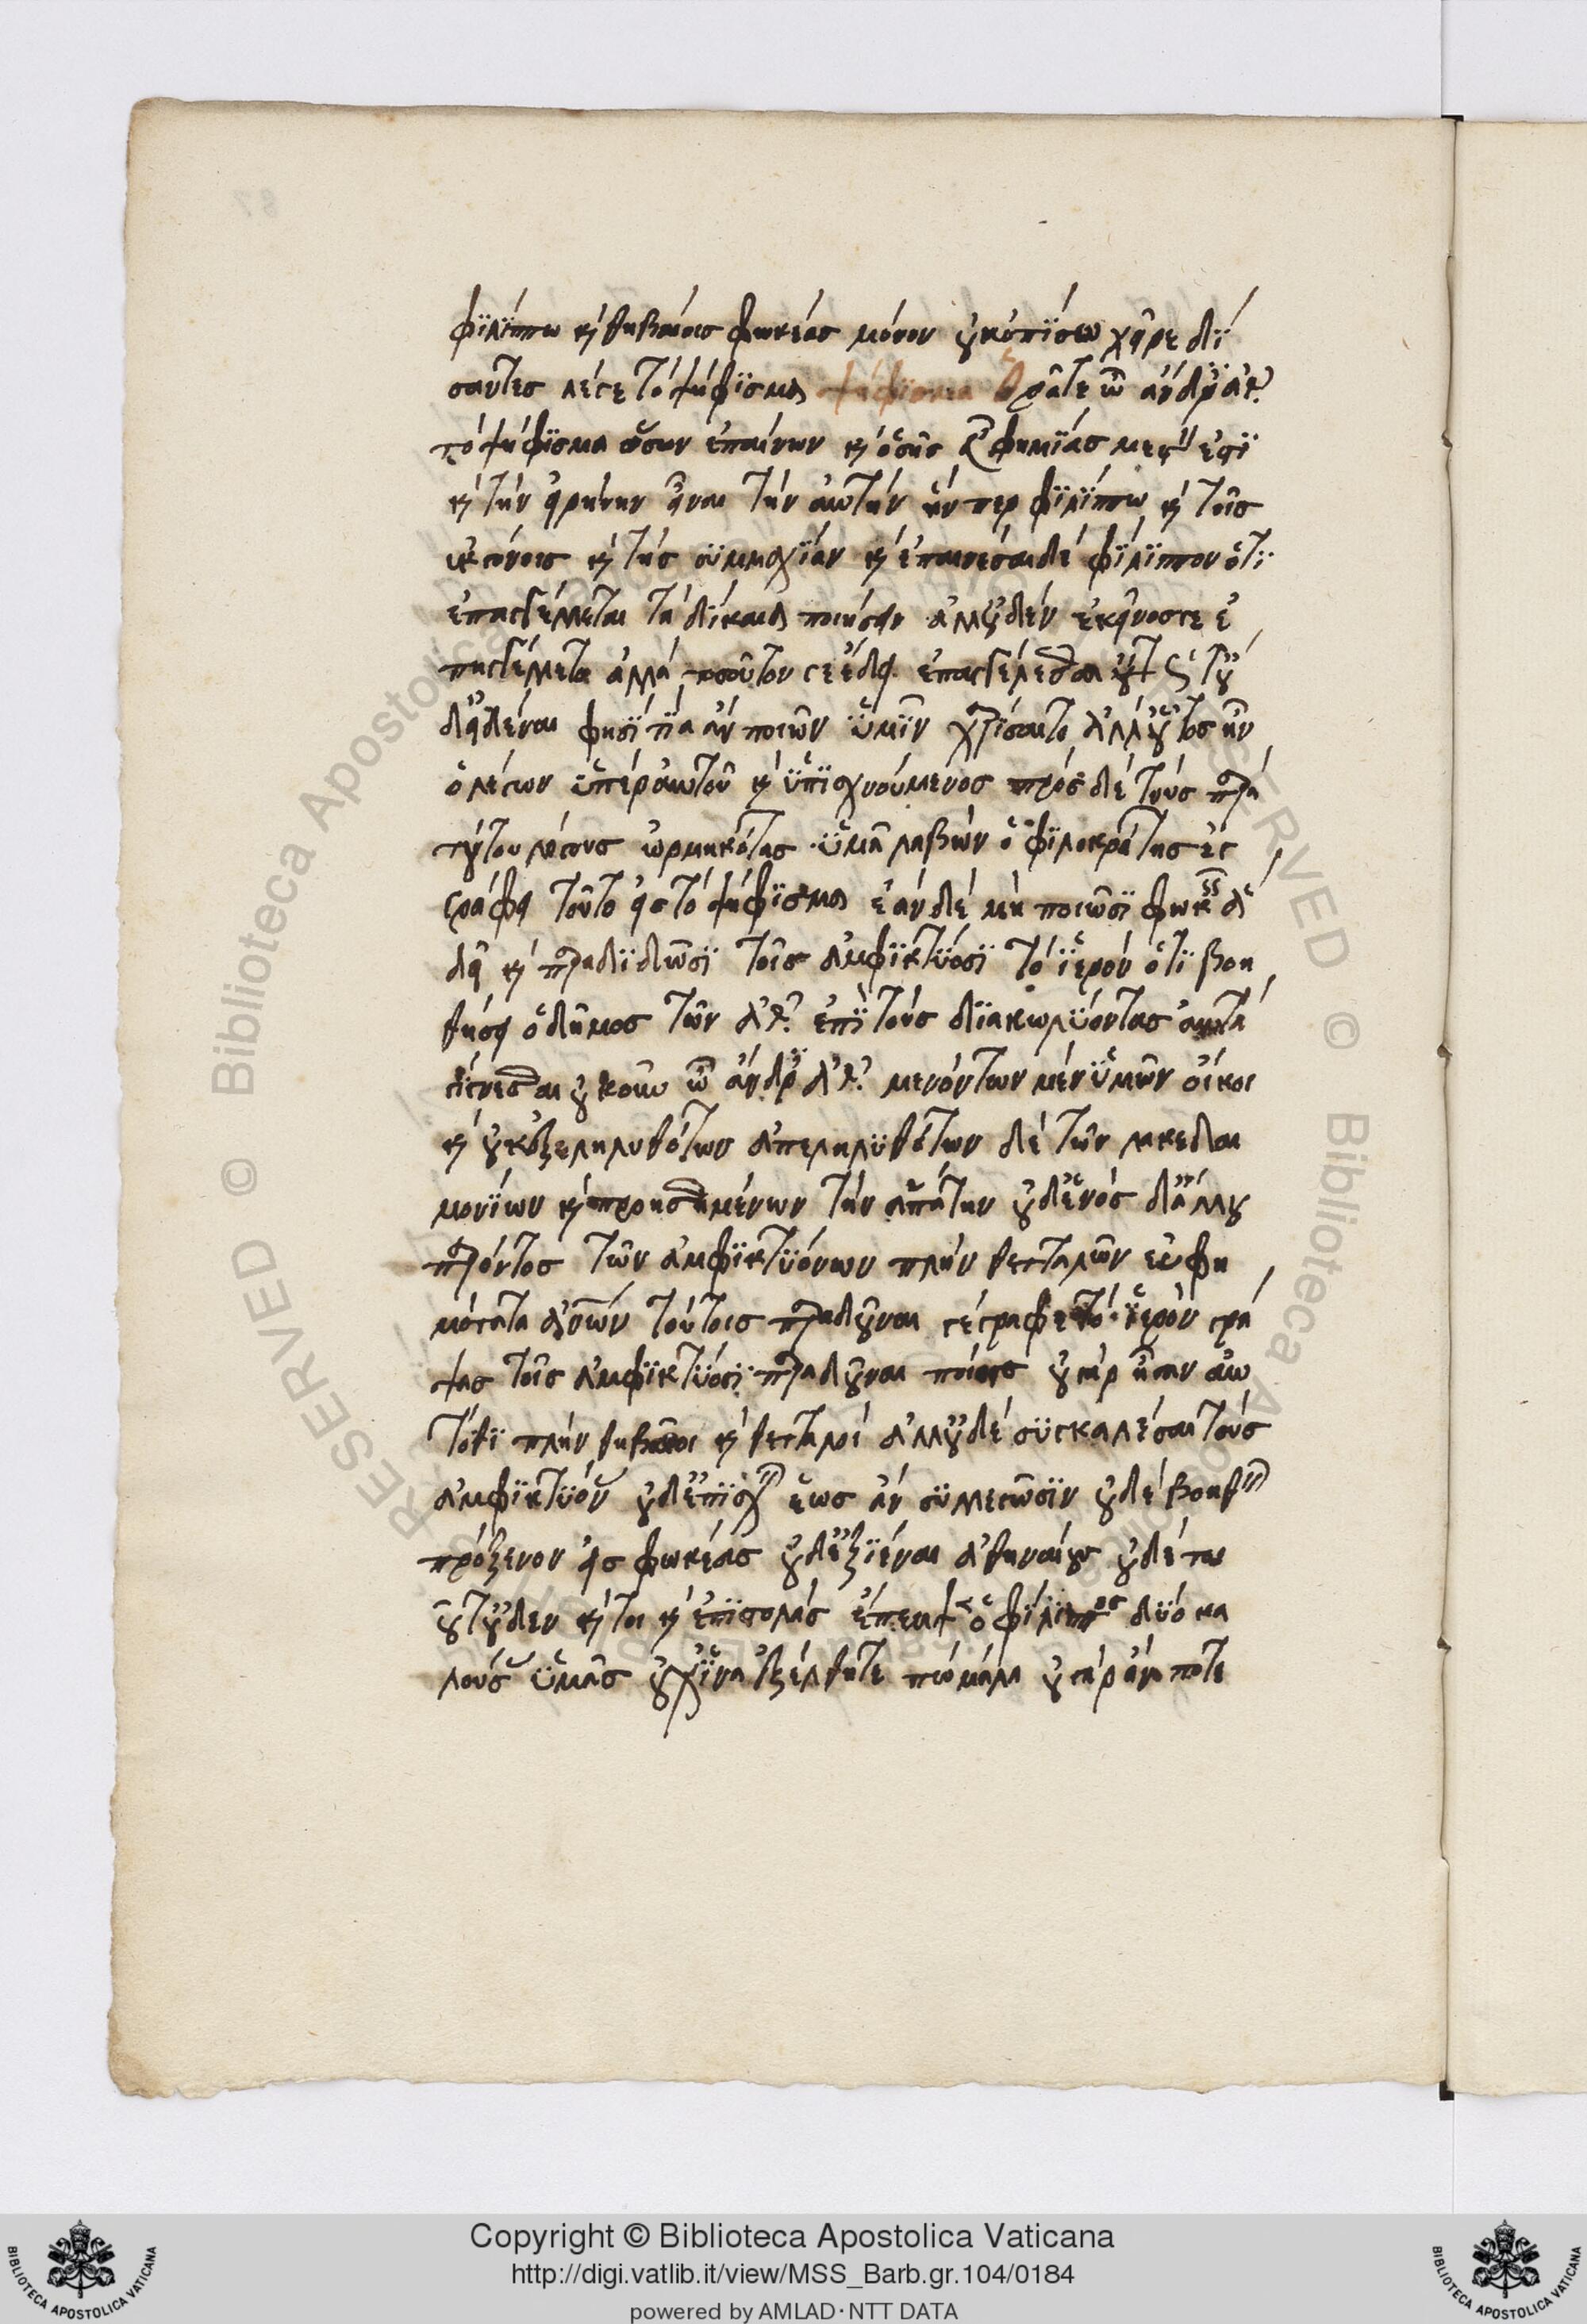 φϊλίππω καὶ θηβαίοις φωκέας μόνον οὐκ ὀπίσω χεῖρε δή
σαντες λέγε τὸ ψήφϊσμα ψήφϊσμα Ὁρᾶτε ὦ ἄνδρες ἀθ
τὸ ψήφϊσμα ὅσων ἐπαίνων καὶ ὅσης εὐφημϊάς μεστόν ἐστϊ
καὶ τὴν εἰρήνην εἶναι τὴν αὐτὴν ἥνπερ φϊλίππω καὶ τοῖς
ἐκγόνοις καὶ τὴν συμμαχίαν καὶ ἐπαινέσαι δὲ φϊλϊππον ὅτι
ἐπαγγέλλεται τὰ δίκαια ποιήσειν ἀλλ' οὐδὲν ἐκεῖνός γε ἐ
πηγγέλλετο ἀλλὰ τοσοῦτον γε ἔδει ἐπαγγέλεσθαι
δ' εἰδέναι φησὶ τί ἂν ποιῶν ὑμῖν χαρίσαιτο ἀλλ' οὗτος ἦν
ὁ λέγων ὑπὲρ αὐτοῦ καὶ ὑπισχνούμενος πρὸς δὲ τοὺς παρὰ
τούτου λόγους ὡρμηκότας ὑμᾶς λαβὼν ὁ φϊλοκράτης ἐγ
γράφει τοῦτο εἰς τὸ ψήφϊσμα ἐὰν δὲ μὴ ποιῶσϊ φωκεῖς ἃ
δεῖ καὶ παραδϊδῶσϊ τοῖς ἀμφϊκτύοσϊ τὸ ἱερόν ὅτι βοη
θήσει ὁ δῆμος τῶν ἀθ ἐπὶ τοὺς διακωλύοντας αὐτὰ
γίνεσθαι οὐκοῦν ὦ ἄνδρες ἀθ μενόντων μὲν ὑμῶν οἴκοι
καὶ οὐκ ἐξεληλυθότων ἀπεληλυθότων δὲ τῶν λακεδαι
μονίων καὶ προησθημένων τὴν ἀπάτην οὐδενὸς δ' ἄλλου
παρόντος τῶν ἀμφϊκτυόνων πλὴν θετταλῶν εὐφη
μότατα ἀνθρώπων τούτοις παραδοῦναι γέγραφε τὸ ἱερὸν γρά
ψας τοῖς ἀμφϊκτύοσϊ παραδοῦναι ποίοις οὐ γὰρ ἦσαν αὐ
τόθι πλὴν θηβαῖοι καὶ θετταλοί ἀλλ' οὐδὲ συγκαλέσαι τοὺς
ἀμφϊκτύονας οὐδ' ἐπϊσχεῖν ἕως ἂν συλλεγῶσιν οὐδὲ βοηθεῖν
πρόξενον εἰς φωκέας οὐδ' ἐξϊέναι ἀθηναίους οὐδὲ τοι
οῦτ' οὐδέν καίτοι καὶ ἐπϊστολὰς ἔπεμψεν ὁ φίλϊππος δύο κα
λούσας ὑμᾶς οὐχ ἵνα ἐξέλθητε πώμαλα οὐ γὰρ ἄν ποτε